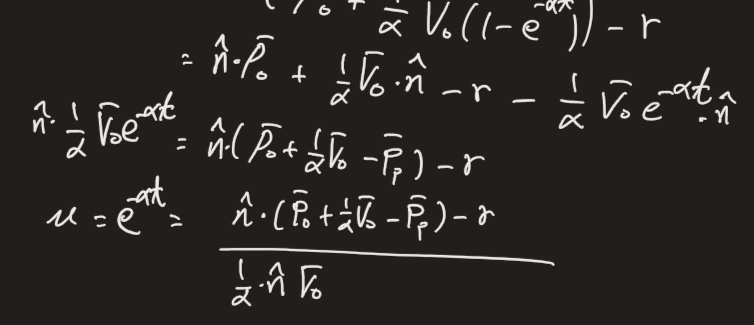 (P̄₀ + 1/α V̄₀(1-e^{-αt})) - r
= n̂·P̄₀ + 1/α V̄₀·n̂ - r - 1/α V̄₀ e^{-αt}·n̂
n̂·1/α V̄₀e^{-αt} = n̂·(P̄₀+1/α V̄₀ - P̄ₚ) - r
u = e^{-αt} = n̂·(P̄₀+1/α V̄₀ - P̄ₚ) - r
1/α·n̂ V̄₀